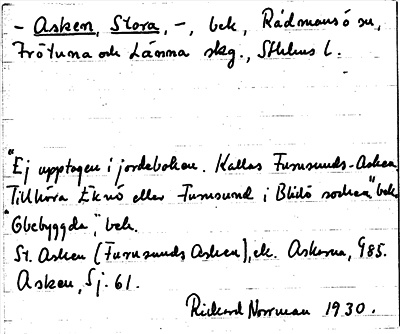 - Asken, Stora, -, bek, Rådmansö sn,
Frötuna och Länna skg., Sthlms l.
"Ej upptagen i jordeboken. Kallas Furusunds-Asken.
Tillhöra Eknö eller Furusund i Blidö socken", bek.
"Obebyggda", bek.
St. Asken (Furusunds Asken), ek. Askarna, G85.
Asken, Sj. 61.
Rickard Norrman 1930.